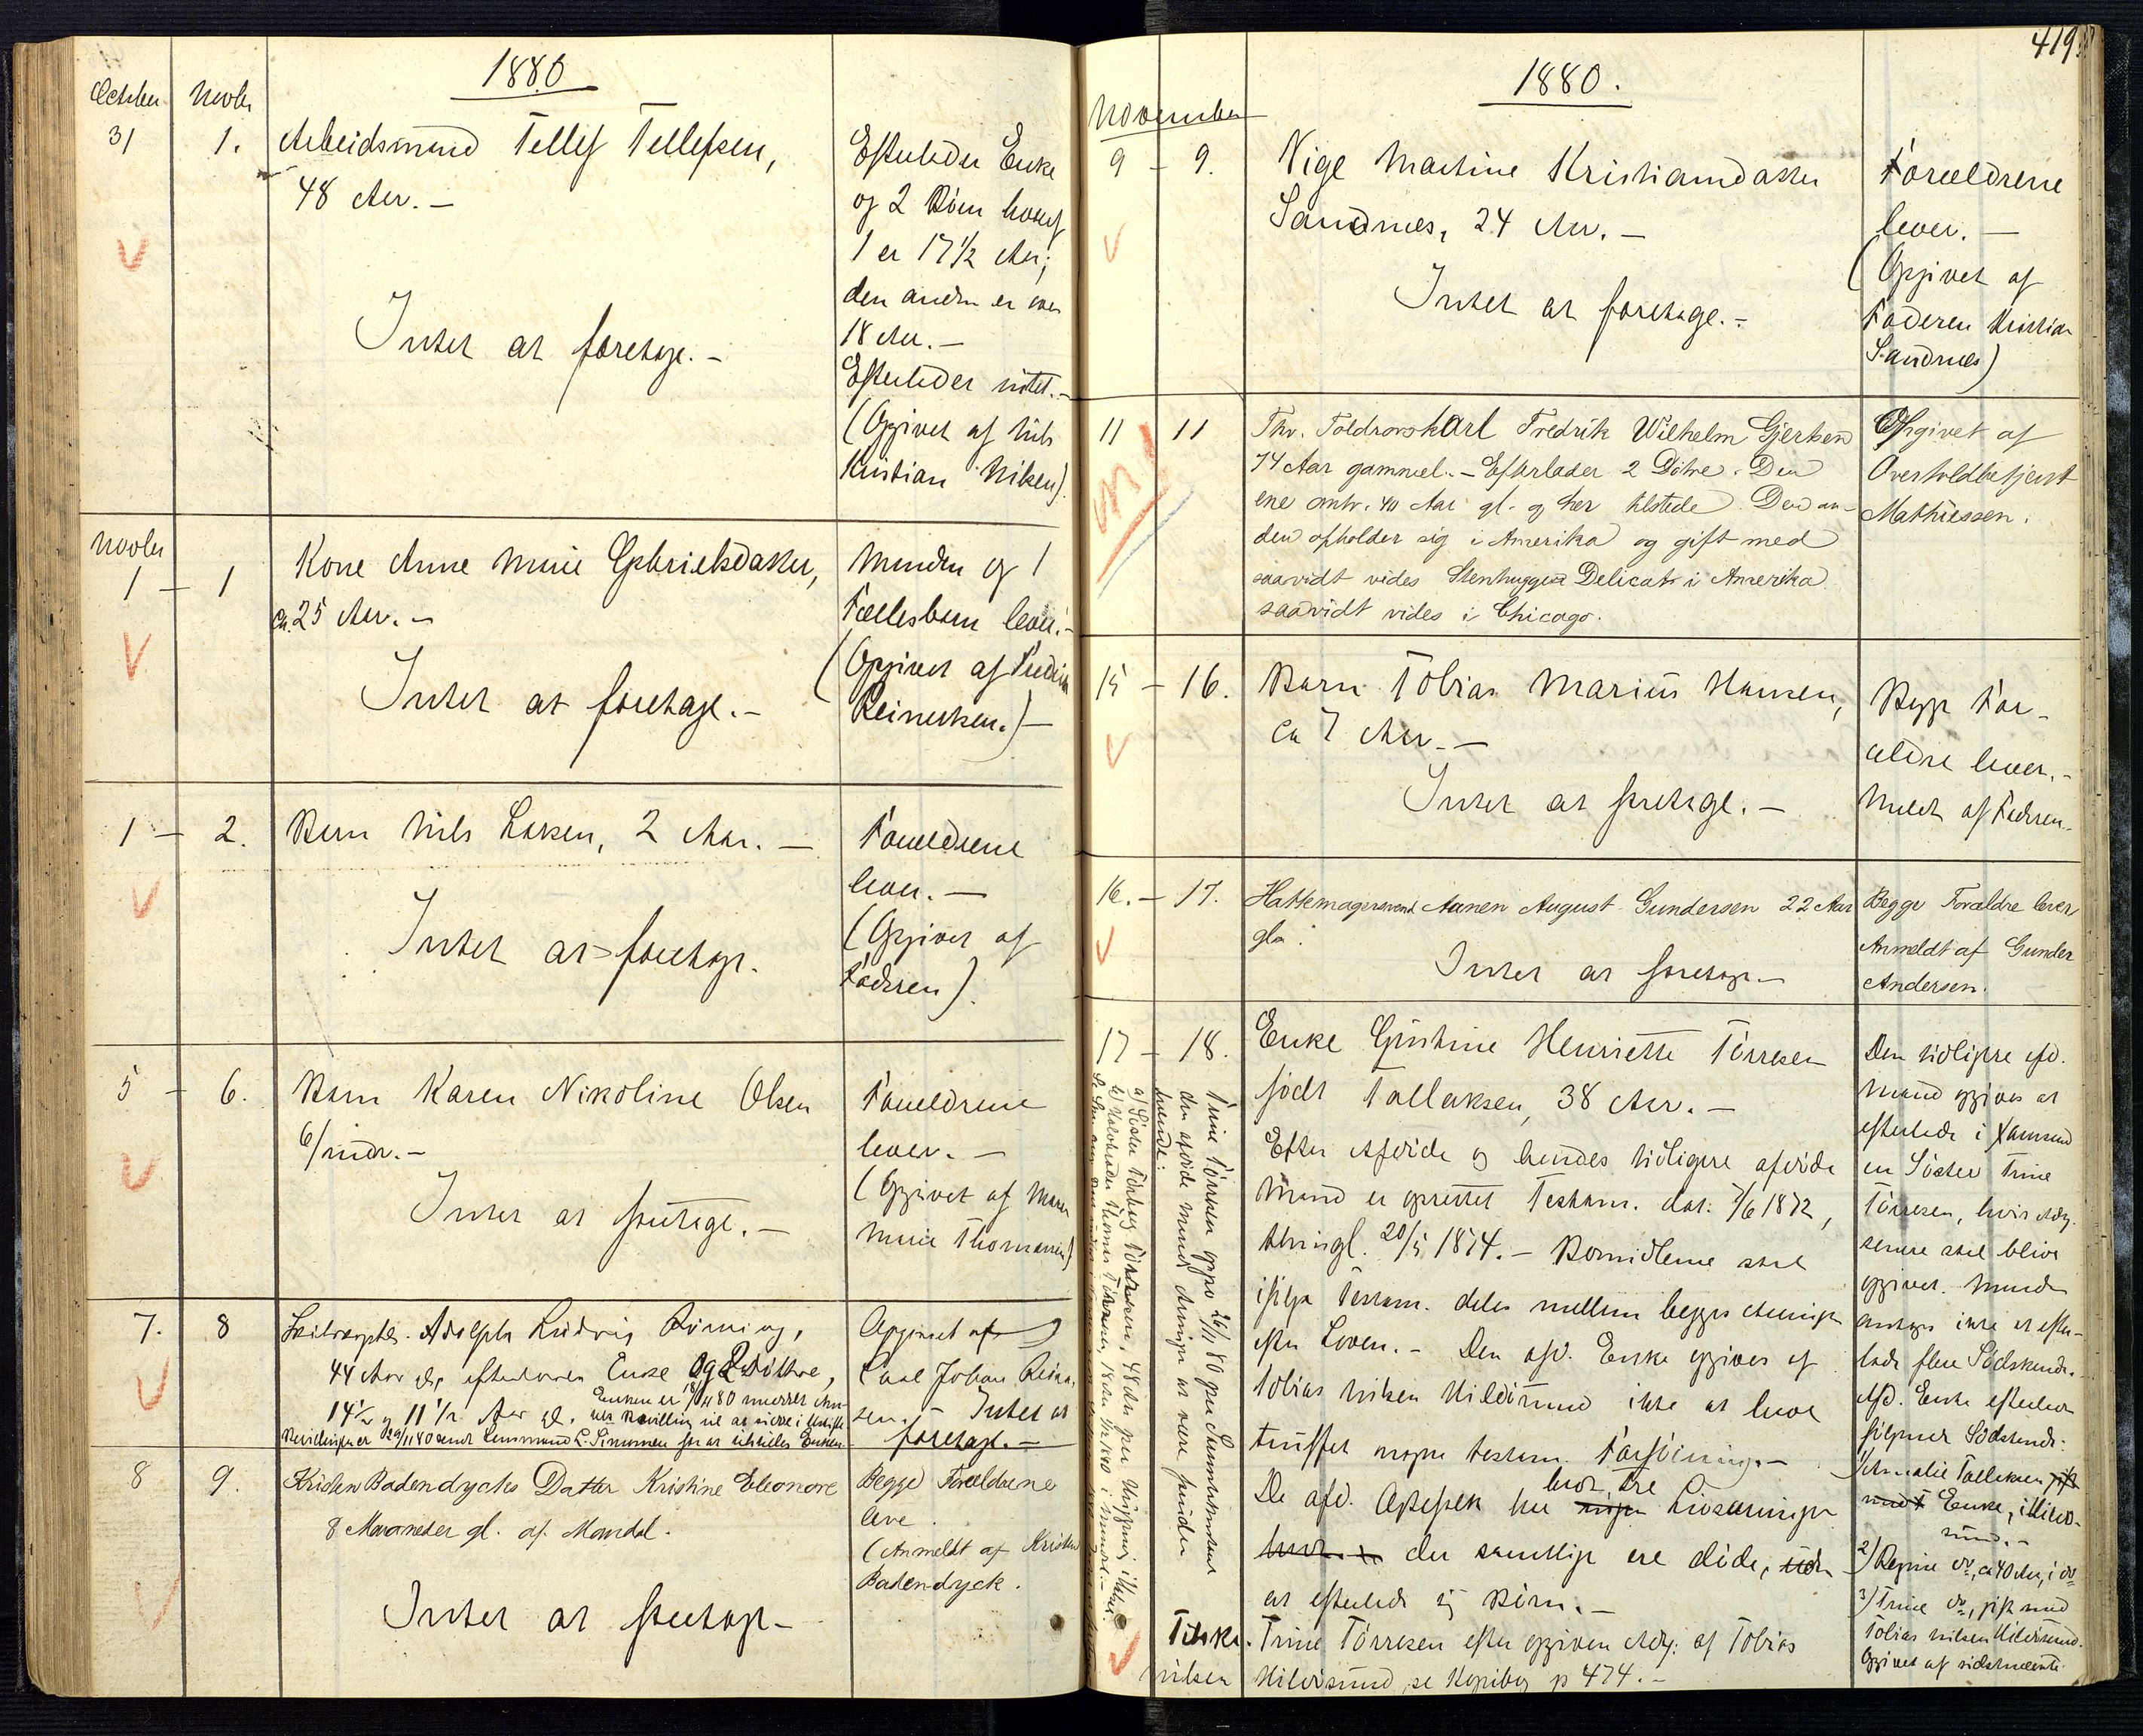 1880
October Novbr
31 1. Arbeidsmand Tellef Tellefsen,
48 Aar. —
Intet at foretage. —
Efterlader Enke
og 2 Börn hvoraf
1 er 17 1/2 Aar;
den anden er over
18 Aar. —
Efterlader intet. —
(Opgivet af Nils
Kristian Nilsen).
Novbr
1 — 1 Kone Anne Marie Gabrielsdatter,
ca. 25 Aar. —
Intet at foretage. —
Manden og 1
Fællesbarn lever. —
(Opgivet af
Reinertsen.) —
1 — 2. Barn Nils Larsen, 2 Aar. —
Intet at foretage.
Forældrene
lever. —
(Opgivet af
Faderen).
5 — 6. Barn Karen Nikoline Olsen
6/mdr. —
Intet at foretage. —
Forældrene
lever. —
(Opgivet af Maren
Marie Thomassen)
7. 8 Adolph Ludvig
44 Aar gl, efterlader Enke og 2 Döttre,
14 1/2 og 11 1/2 Aar gl. Enken er 18/11 80 meddelt
Bevilling til at sidde i uskiftet
Bevilingen er 29/11 80 sendt Lensmand
Opgivet af
Carl Johan
Intet at
foretage. —
8 9. Kristen Badendycks Datter Kristine Eleonore
8 Maaneder gl. af Mandal.
Intet at foretage —
Begge Forældrene
leve.
(Anmeldt af Kristen
Badendyck.
419.
1880.
November
9 — 9. Pige Martine Kristiansdatter
Sandnes, 24 Aar. —
Intet at foretage. —
Forældrene
lever. —
(Opgivet af
Faderen Kristian
Sandnes)
11 11 Fhv. Toldroerskarl Fredrik Wilhelm Gjertsen
74 Aar gammel. — Efterlader 2 Dötre. Den
ene omtr. 40 Aar gl. og her tilstede. Den an-
den opholder sig i Amerika og gift med
saavidt vides Stenhugger Delicat i Amerika
saavidt vides i Chicago.
Opgivet af
Overtoldbetjent
Mathiessen.
15 — 16. Barn Tobias Marius Hansen,
ca 7 Aar. —
Intet at foretage. —
Begge For-
ældre lever. —
Meldt af Faderen.
16. — 17. Hattemagersvend Aanen August Gundersen 22 Aar
gl.
Intet at foretage —
Begge Forældre lever
Anmeldt af Gunder
Andersen.
17 — 18. Enke Gustine Henriette Törresen
födt Tallaksen, 38 Aar. —
Efter Afdöde og hendes tidligere afdöde
Mand er oprettet Testam. dat. 7/6 1872,
thingl. 20/5 1874. — Bomidlerne skal
ifölge Testam. deles mellem begges Arvinger
efter Loven. — Den afd. Enke opgives af
Tobias Nilsen Hildörsund ikke at have
truffet nogen testam. Forföining. —
De afd. Ægtefolk har havt tre Livsarvinger
der samtlige ere döde, uden
at efterlade sig Börn. —
Trine Törresen efter opgiven Adr: af Tobias
Nilsen Hildörsund, se Kopibog p 474. —
Den tidligere afd.
Mand opgives at
efterlade i Farsund
en Söster Trine
Törresen, hvis Adr.
senere skal blive
opgivet. Manden
antages ikke at efter-
lade flere Södskende.
Afd. Enke efterlader
fölgende Södskende:
1) Amalie Tallaksen gift
med Enke,
2) Regine do, ca 40 Aar, i do
3) Trine do, gift med
Tobias Nilsen Hildörsund.
Opgivet af sidstnævnte.
Trine Törresen opgav 26/11 80 per
den afdöde Mands Arvinger at være fölgende
a) Söster Törborg Törresen, 48 Aar
b) Halvbroder Thomas Törresen, 18 Aar